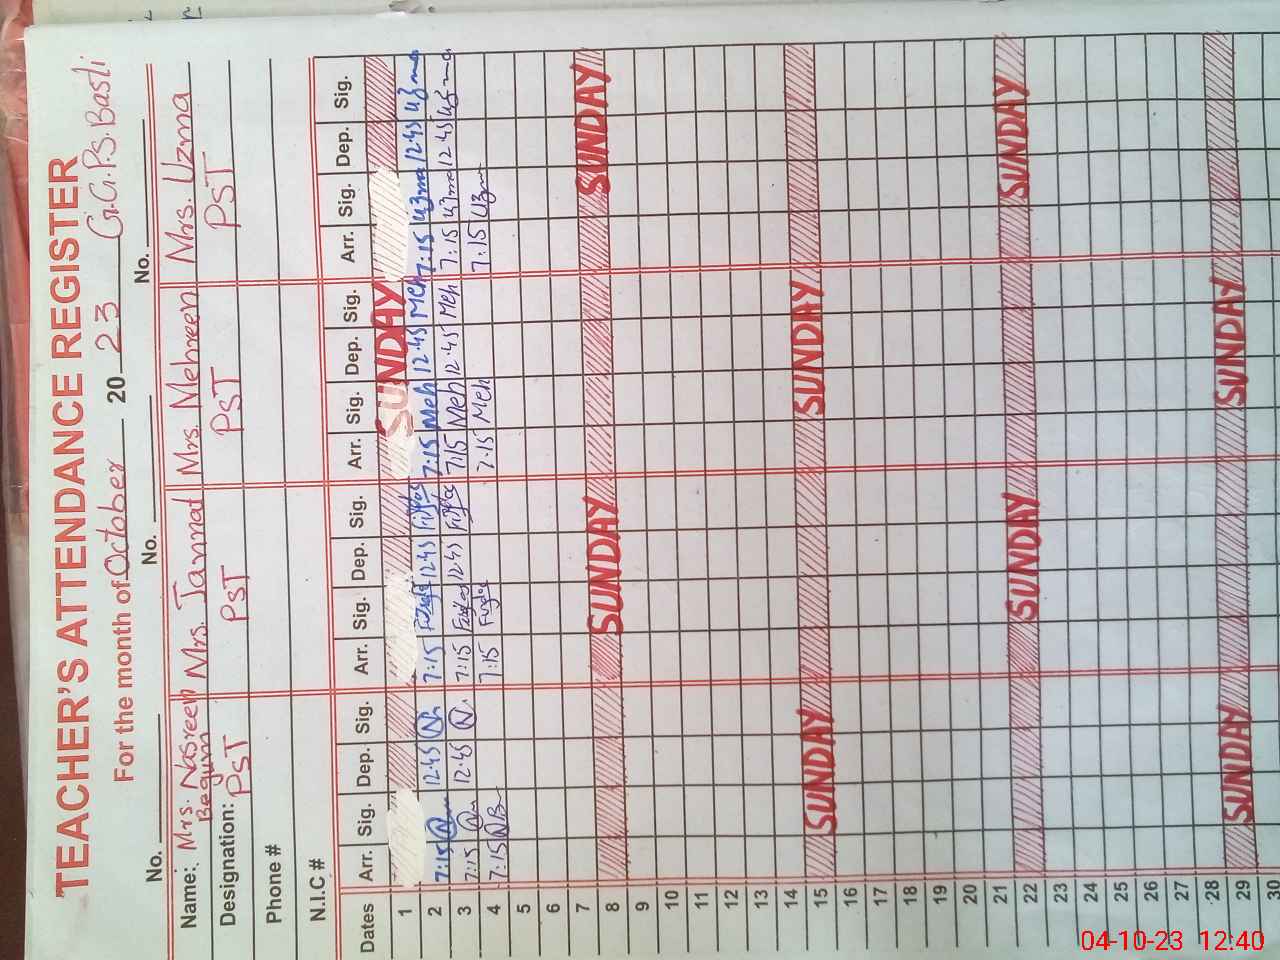 TEACHER'S ATTENDANCE REGISTER
For the month of October 20 23 G.G.P.S. Basti
No. No. No. No.
Name: Mrs. Nasreen Begum Mrs. Jannat Mrs. Mehreen Mrs. Uzma
Designation: PST PST PST PST
Phone #
N.I.C #
Dates Arr. Sig. Dep. Sig. Arr. Sig. Dep. Sig. Arr. Sig. Dep. Sig. Arr. Sig. Dep. Sig.
1 SUNDAY
2 7:15 N 12:45 N 7:15 12:45 7:15 Meh 12:45 Meh 7:15 Uzma 12:45 Uzma
3 7:15 12:45 N 7:15 12:45 7:15 Meh 12:45 Meh 7:15 Uzma 12:45 Uzma
4 7:15 NB 7:15 7:15 Meh 7:15 Uzma
5
6
7
8 SUNDAY SUNDAY
9
10
11
12
13
14
15 SUNDAY SUNDAY
16
17
18
19
20
21
22 SUNDAY SUNDAY
23
24
25
26
27
28
29 SUNDAY SUNDAY
30
04-10-23 12:40